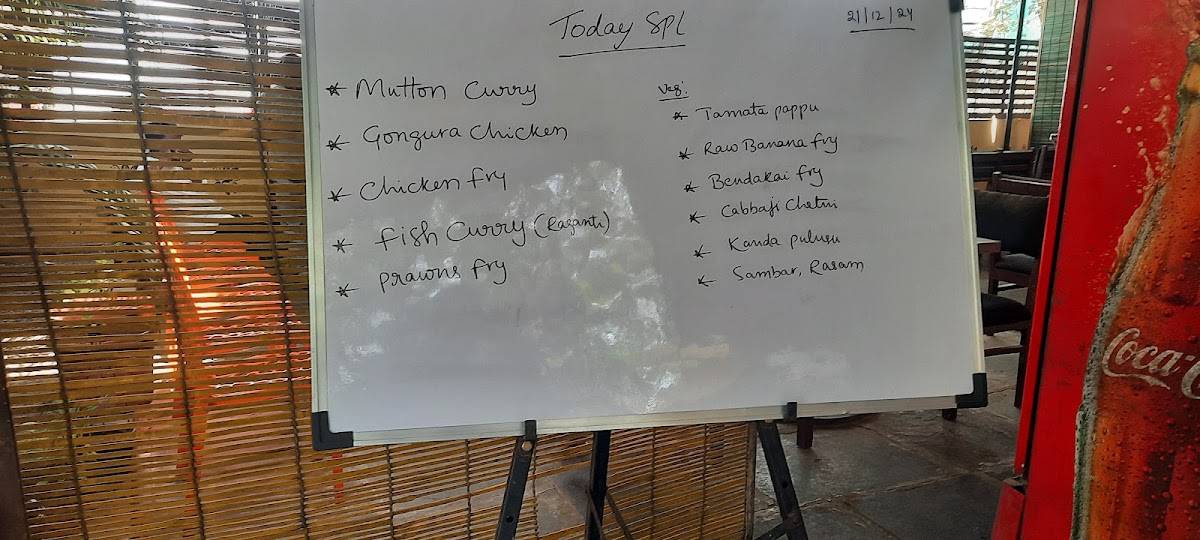 Today Spl
21/12/24
* Mutton Curry
* Gongura Chicken
* Chicken fry
* fish Curry (Raganti)
* prawns fry
Veg:
* Tamata pappu
* Raw Banana fry
* Bendakai fry
* Cabbaji Chetni
* Kanda pulusu
* Sambar, Rasam
Coca-C